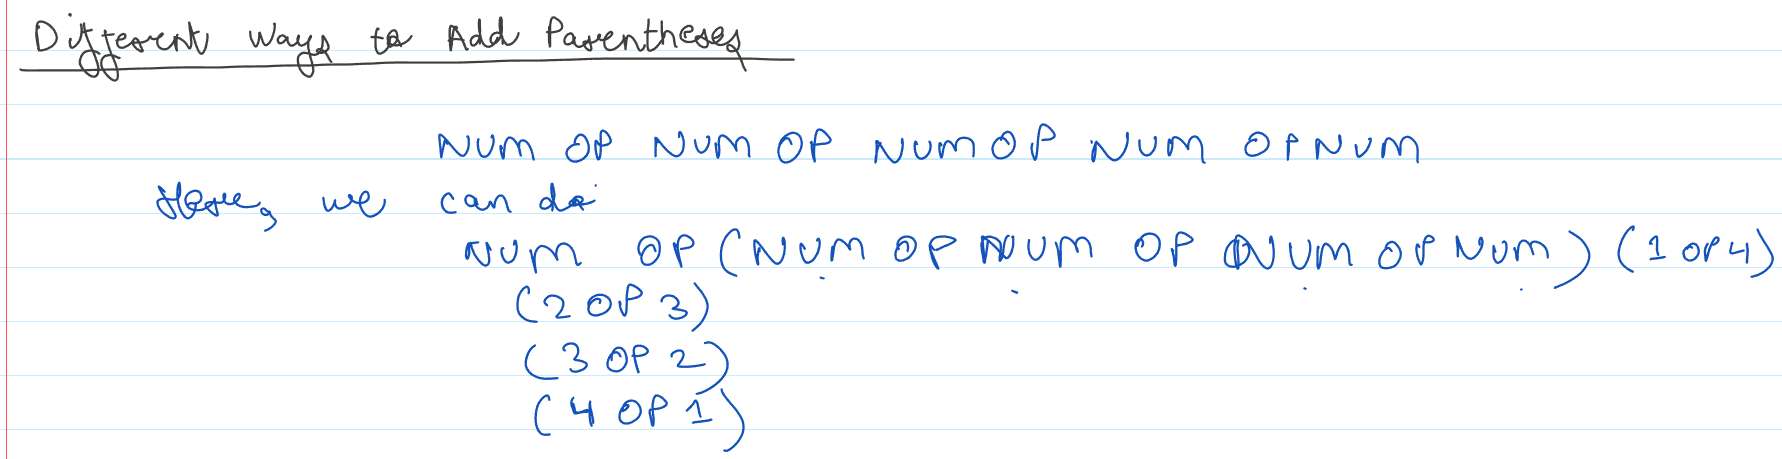 Different Ways to Add Parentheses
NUM OP NUM OP NUM OP NUM OP NUM
Here, we can do
NUM OP (NUM OP NUM OP NUM OP NUM) (1 OP 4)
(2 OP 3)
(3 OP 2)
(4 OP 1)